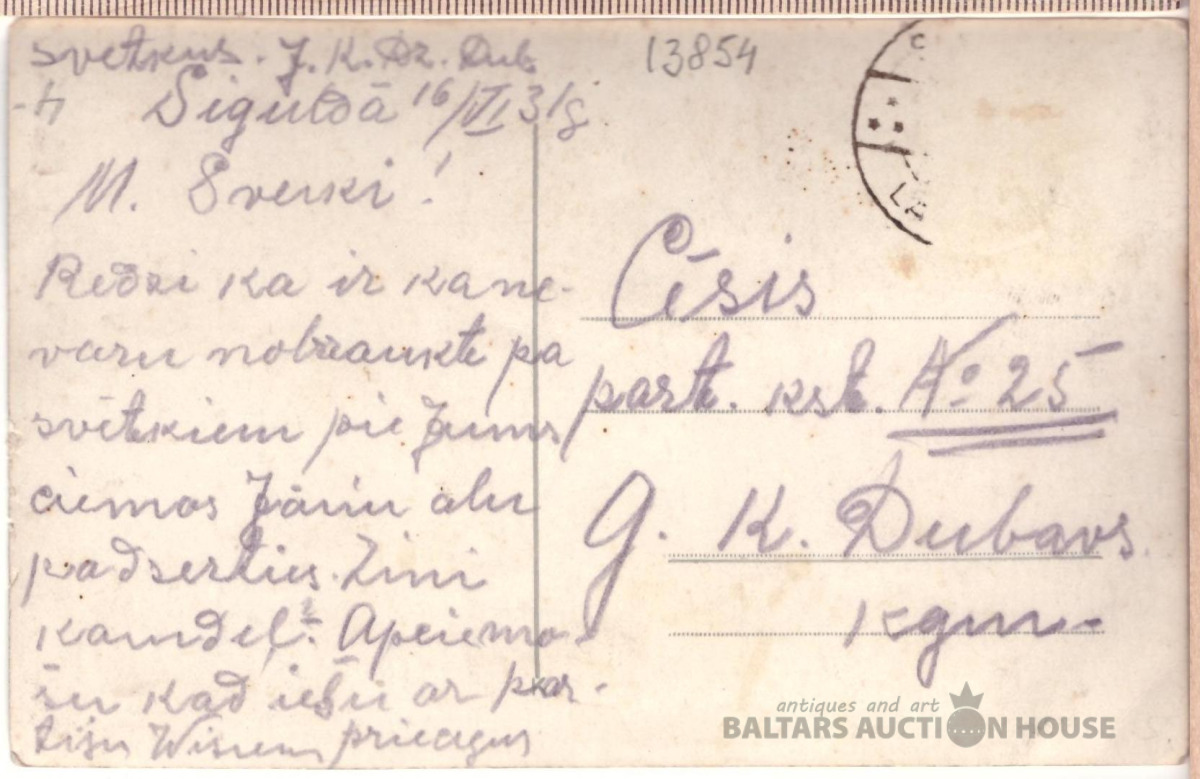 svetkus. J. K. Dz. Dub.
13854
Siguldā 16/VI 31g
M. Sveiki!
Redzi ka ir kane-
varu nobraukte pa
svētkiem pie Jums
ciemos Jāņu alu
padzerties. Zini
kamdeļ? Apciemo-
šu kad iešu ar par-
tiju Wisiem priecagus
LA
Cēsis
paste. kst. No 25
g. K. Dubavs
kgm.
antiques and art
BALTARS AUCTION HOUSE